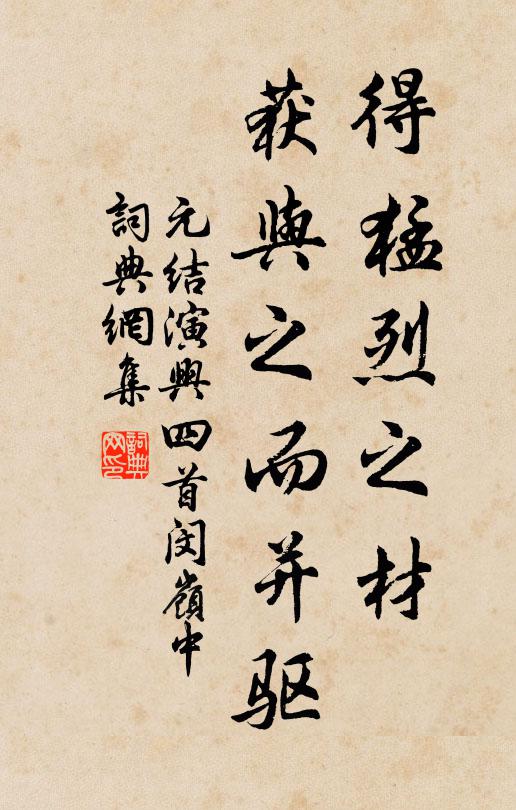 得猛烈之材
获與之而并驱
元结演興四首闵嶺中
詞典網集
詞典
网印